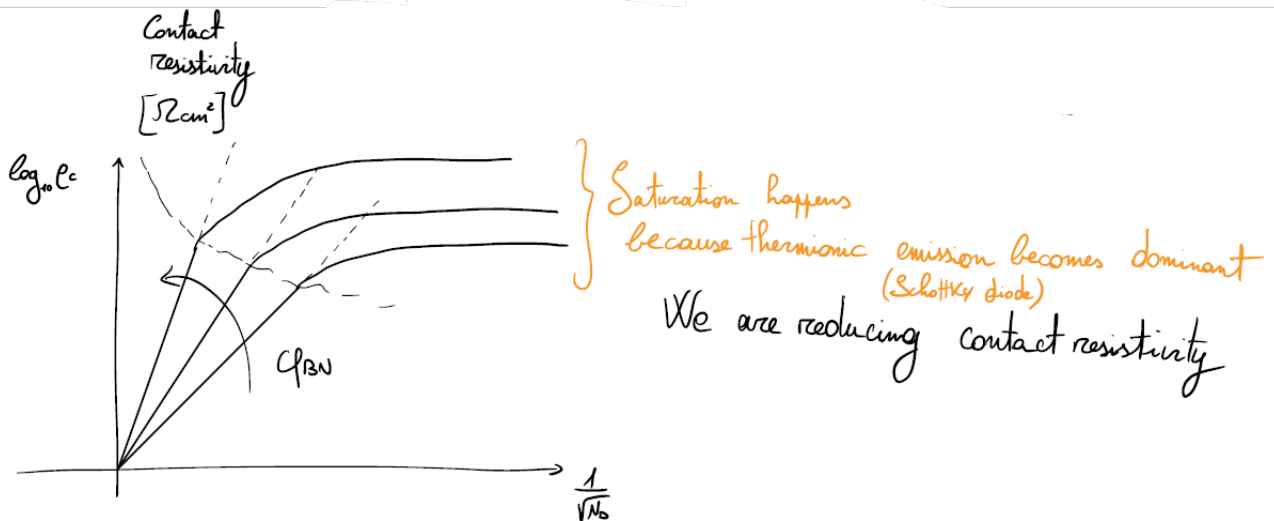 Contact
resistivity
[Ωcm²]
log₁₀ ρc
Saturation happens
because thermionic emission becomes dominant
(Schottky diode)
We are reducing contact resistivity
φBN
1/√ND